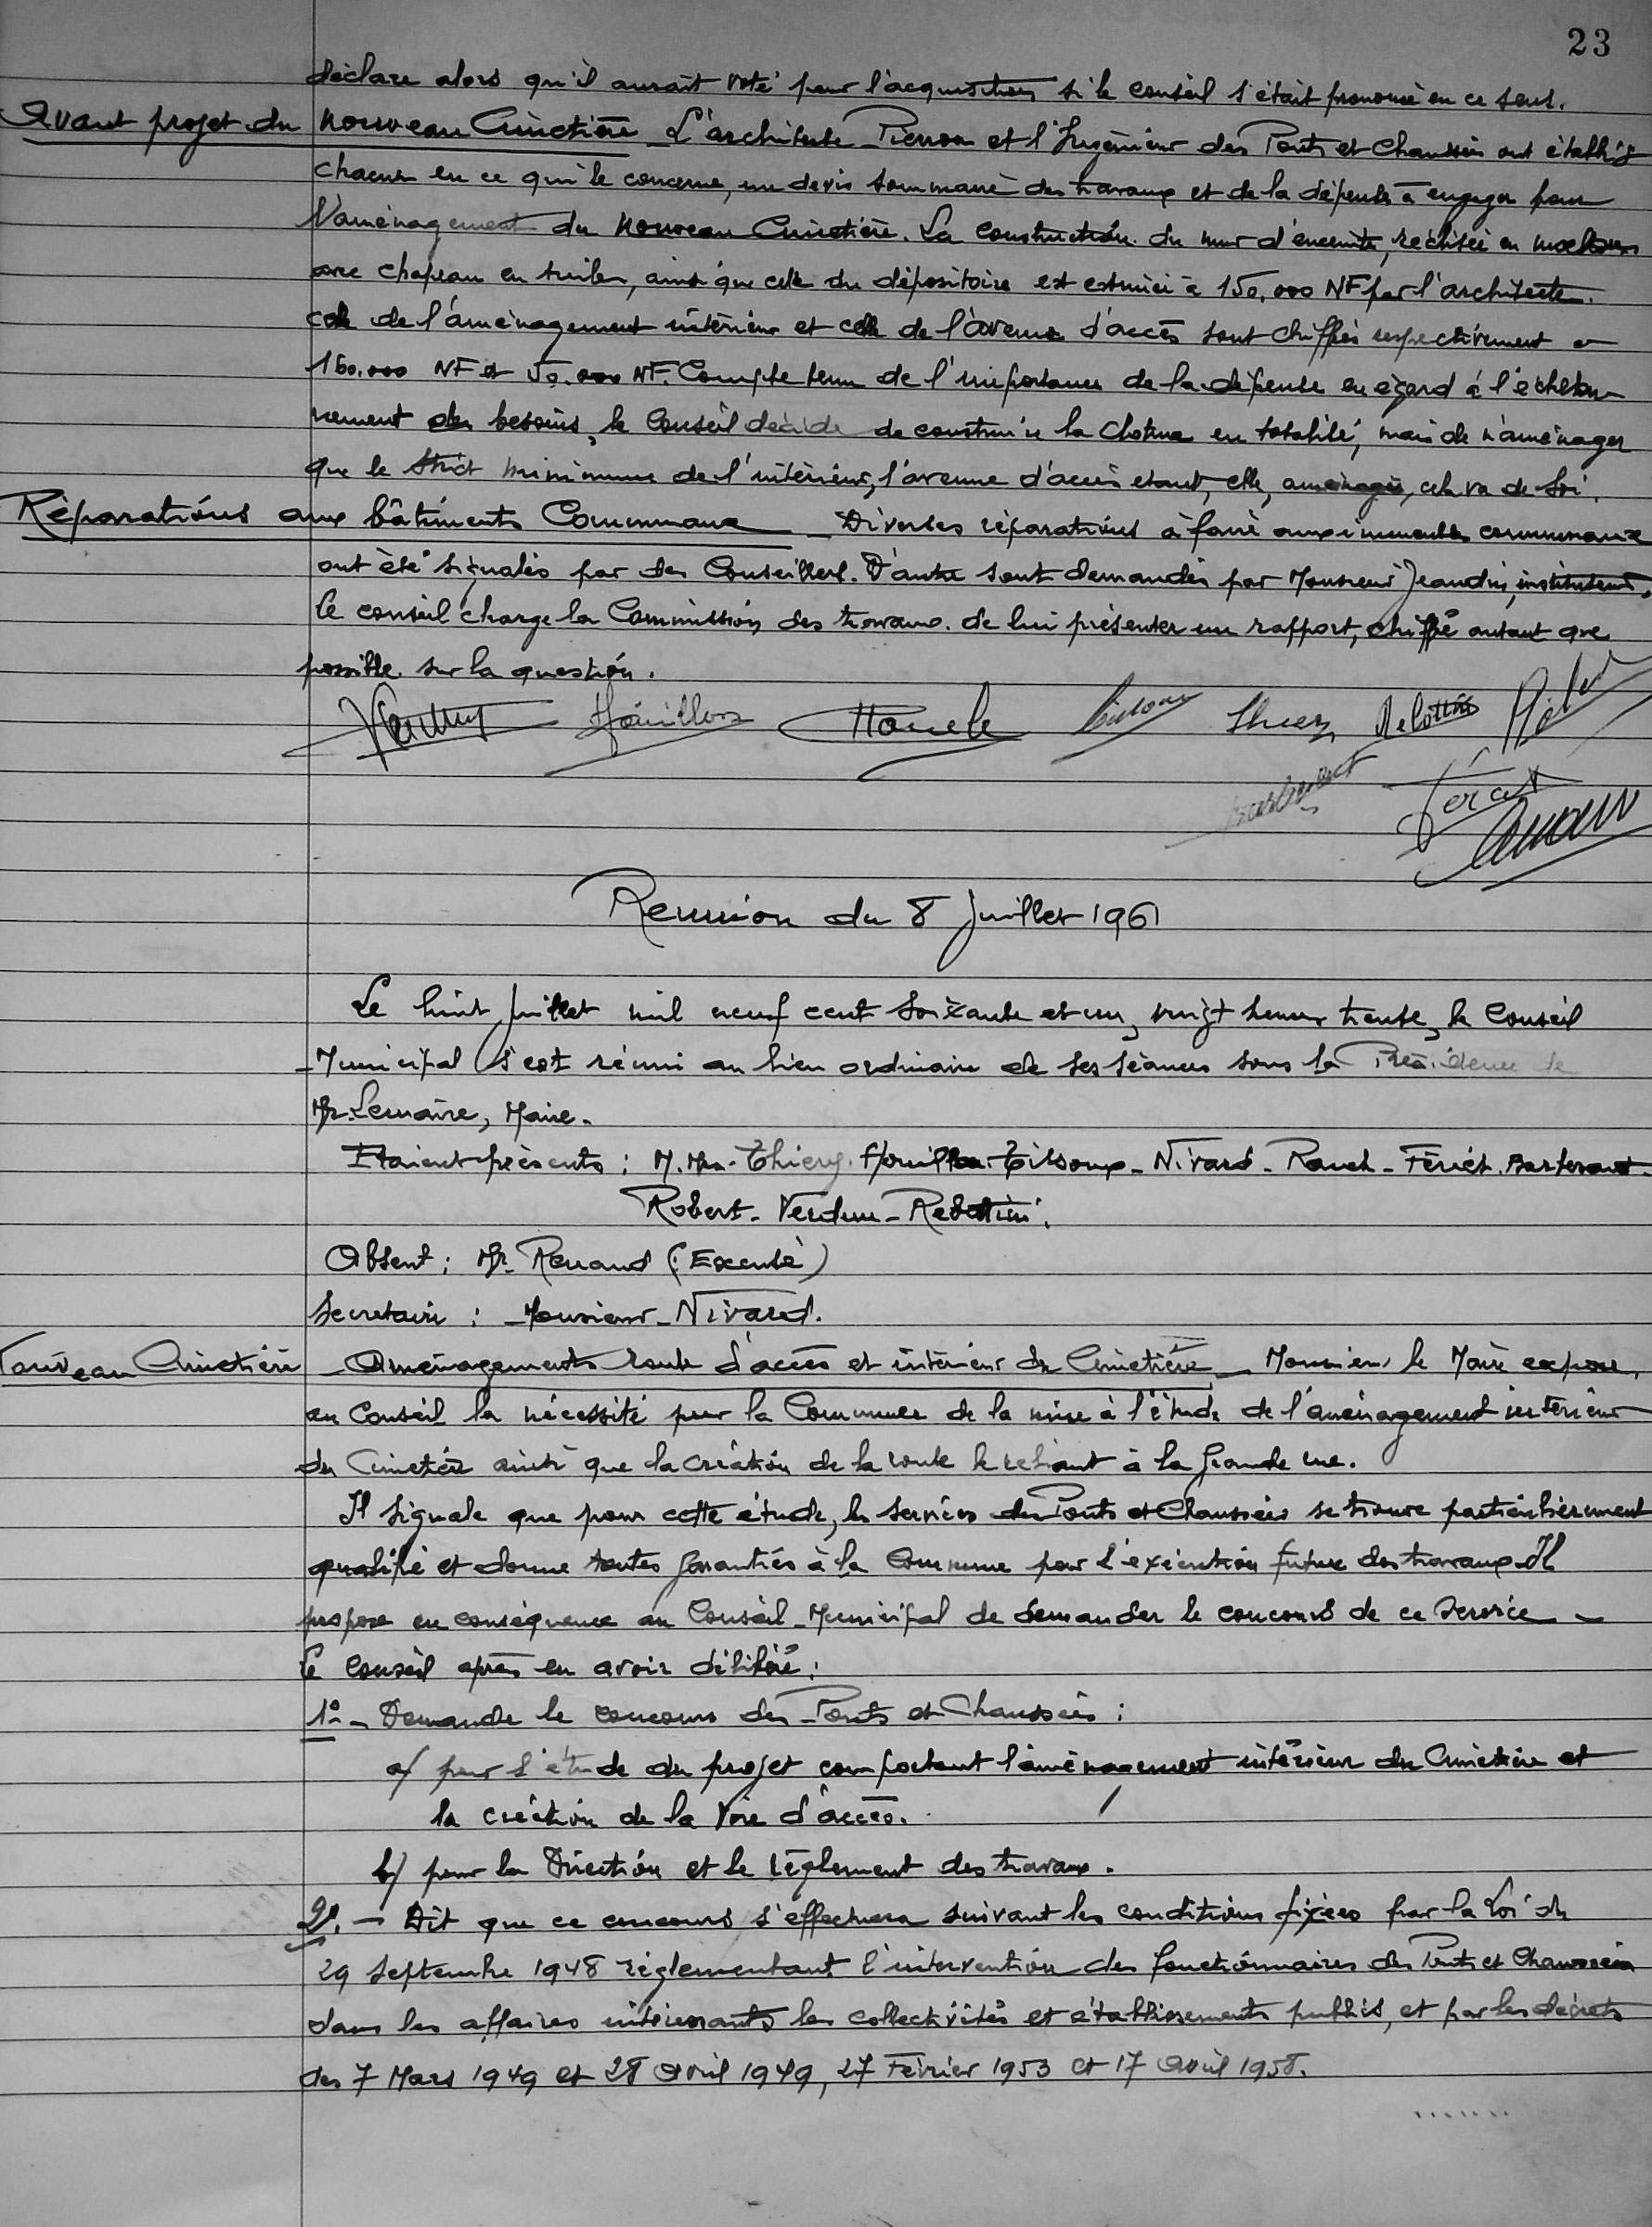 23
déclare alors qu'il aurait voté pour l'acquisition si le conseil s'était prononcé en ce sens.
Avant projet du nouveau Cimetière _ L'architecte Pierron et l'Ingénieur des Ponts et Chaussées ont établis
chacun en ce qui le concerne, un devis sommaire des travaux et de la dépense à engager pour
l'aménagement du nouveau Cimetière. La construction du mur d'enceinte, réalisée en moellons
avec chapeau en tuiles, ainsi que celle du dépositoire est estimée à 150.000 NF par l'architecte.
celle de l'aménagement intérieur et celle de l'avenue d'accès sont chiffrés respectivement à
160.000 NF et 50.000 NF. Compte tenu de l'importance de la dépense en égard à l'échelon-
nement des besoins, le Conseil décide de construire la clôture en totalité, mais de n'aménager
que le strict minimum de l'intérieur, l'avenue d'accès étant, elle, aménagée, cela va de soi.
Réparations aux bâtiments Communaux _ Diverses réparations à faire aux immeubles communaux
ont été signalés par des Conseillers. D'autre sont demandés par Monsieur Jeandin, instituteur,
le conseil charge la Commission des travaux de lui présenter un rapport, chiffré autant que
possible sur la question.
Houillon
Thiery Rebottini Robert
Fériet
Reunion du 8 Juillet 1961
Le huit Juillet mil neuf cent soixante et un, vingt heures trente, le Conseil
Municipal s'est réuni au lieu ordinaire de ses séances sous la Présidence de
Mr. Lemaire, Maire.
Etaient présents : M. Mrs. Thiery. Houillon. Tissoux - Nivard - Rauch - Fériet.
Robert - Verdun - Rebottini.
Absent : Mr. Renaud (Excusé)
Secretaire : Monsieur Nivard.
Nouveau Cimetière _ Aménagements route d'accès et intérieur du Cimetière _ Monsieur le Maire expose
au Conseil la nécessité pour la Commune de la mise à l'étude de l'aménagement intérieur
du Cimetière ainsi que la création de la route le reliant à la Grande rue.
Il signale que pour cette étude, les services des Ponts et Chaussées se trouve particulièrement
qualifié et donne toutes garanties à la Commune pour l'exécution future des travaux. Il
propose en conséquence au Conseil Municipal de demander le concours de ce Service _
Le Conseil après en avoir délibéré :
1º - Demande le concours des Ponts et Chaussées :
a/ pour l'étude du projet comportant l'aménagement intérieur du Cimetière et
la création de la voie d'accès.
b/ pour la Direction et le règlement des travaux.
2º. - Dit que ce concours s'effectuera suivant les conditions fixées par la Loi du
29 Septembre 1948 réglementant l'intervention des fonctionnaires des Ponts et Chaussées
dans les affaires intéressants les collectivités et établissements publics, et par les décrets
des 7 Mars 1949 et 28 Avril 1949, 27 Février 1953 et 17 Avril 1958.
.......